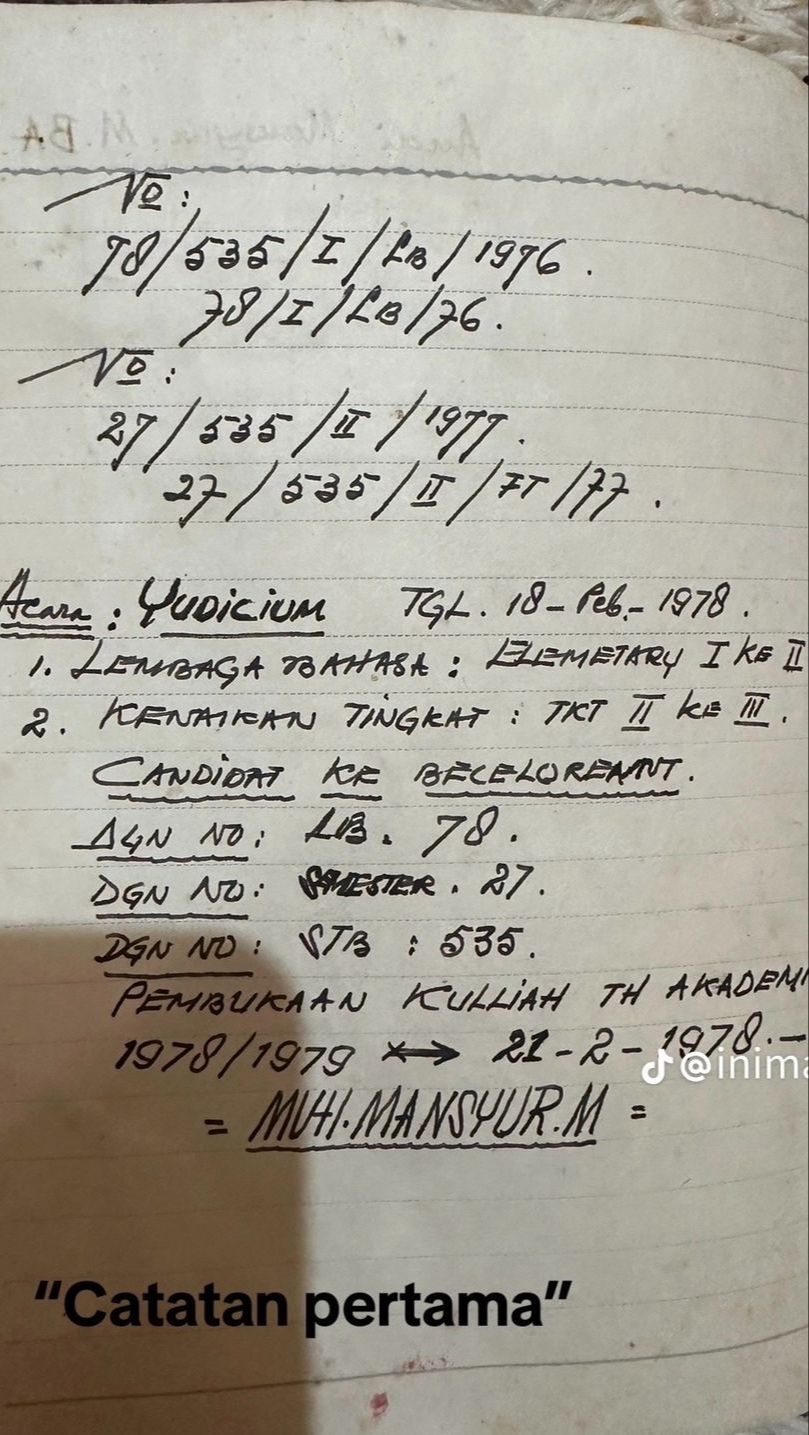 No:
78/535/I/LB/1976.
78/I/LB/76.
No:
27/535/II/1977.
27/535/II/FT/77.
Acara: YUDICIUM TGL. 18-Peb.-1978.
1. LEMBAGA BAHASA: ELEMETARY I KE II
2. KENAIKAN TINGKAT: TKT II KE III.
CANDIDAT KE BECELOREANT.
DGN NO: LB. 78.
DGN NO: SMESTER. 27.
DGN NO: STB: 535.
PEMBUKAAN KULLIAH TH AKADEMI
1978/1979 21-2-1978.-
@inima
= MUH.MANSYUR.M =
"Catatan pertama"